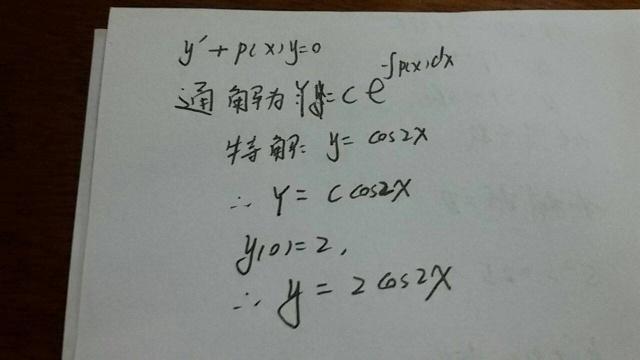 y′+p(x)y=0
通解为 Y=ce^{-∫p(x)dx}
特解: y=cos2x
∴ Y=c cos2x
y(0)=2,
∴ y=2cos2x